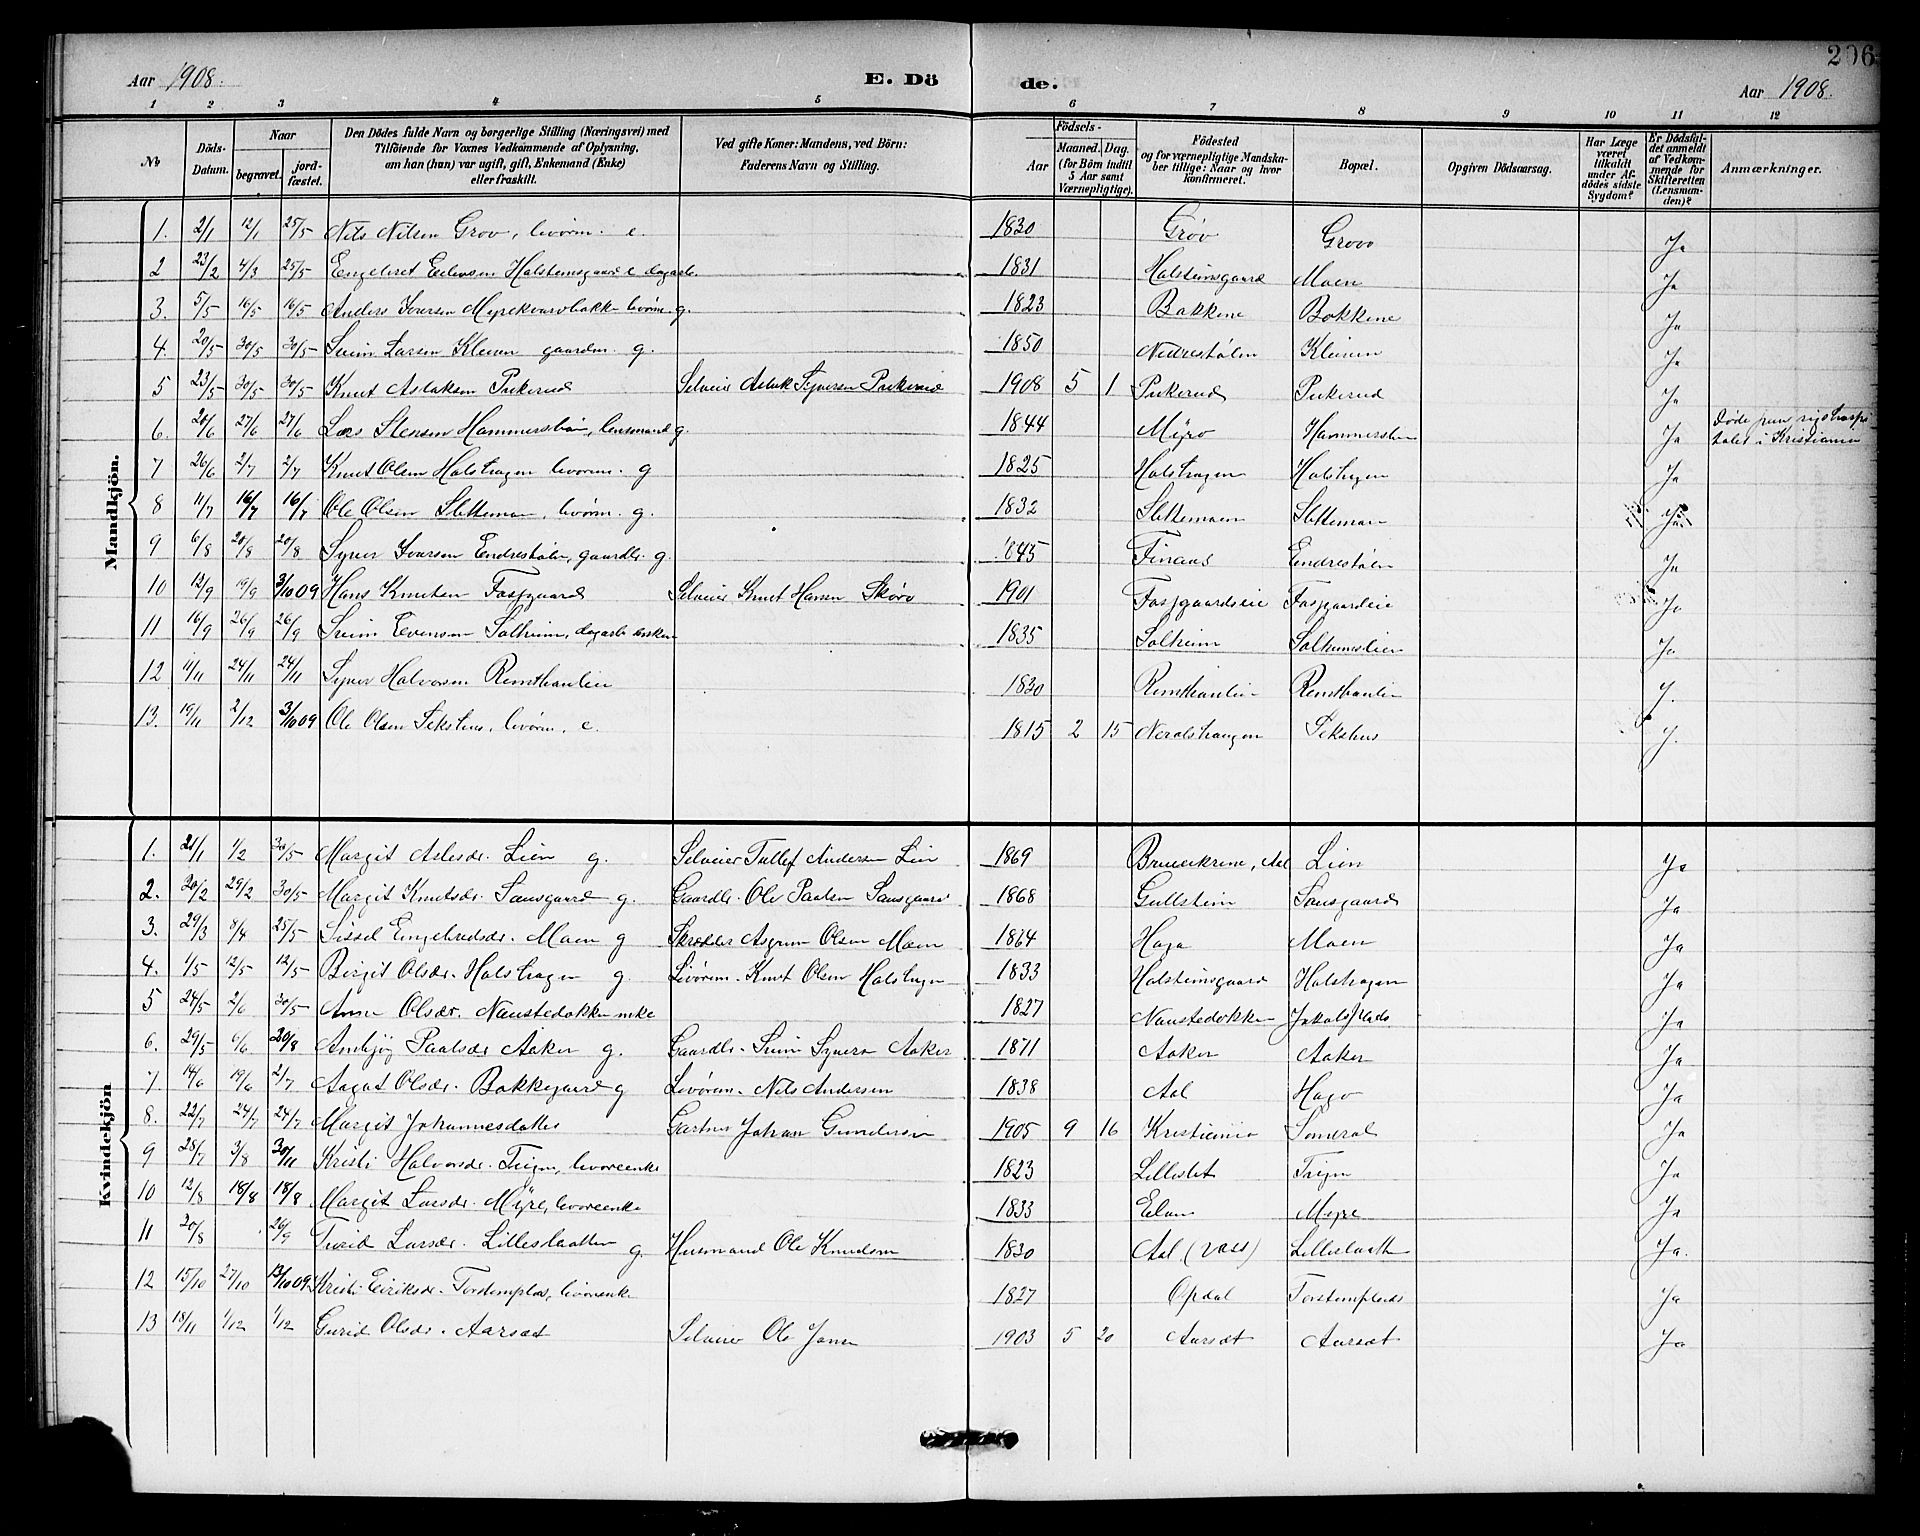 206
Aar 1908. E. Dö de. Aar 1908.
1 2 3 4 5 6 7 8 9 10 11 12
No Döds-Datum. Naar begravet. jord-fæstet. Den Dödes fulde Navn og borgerlige Stilling (Næringsvei) med Tilföiende for Voxnes Vedkommende af Oplysning, om han (hun) var ugift, gift, Enkemand (Enke) eller fraskilt. Ved gifte Koner: Mandens, ved Börn: Faderens Navn og Stilling. Aar Födsels- Maaned. Dag. (for Börn indtil 5 Aar samt Værnepligtige). Födested og for værnepligtige Mandskaber tillige: Naar og hvor konfirmeret. Bopæl. Opgiven Dödsaarsag. Har Læge været tilkaldt under Afdödes sidste Sygdom? Er Dödsfaldet anmeldt af Vedkommende for Skifteretten (Lensmanden)? Anmærkninger.
Mandkjön.
1. 2/1 12/1 25/5 Nils Nilsen Grøv, livørm. e. 1830 Grøv Grovo Ja
2 23/2 4/3 25/5 Engebret Halsteinsgaard e dagarb. 1831 Halsteinsgaard Moen Ja
3. 5/5 16/5 16/5 Anders Ivarsen livørm. g. 1823 Bakkene Bakkene Ja
4. 20/5 30/5 30/5 Svein Larsen Kleven gaardm. g. 1850 Nedrestølen Kleiven Ja
5 23/5 30/5 30/5 Knut Aslaksen Pukerud Selveier Aslak Syversen Pukerud 1908 5 1 Pukerud Pukerud Ja
6. 20/6 27/6 27/6 Lars Stensen Hammersbøen, lensmand g. 1844 Myro Ja Døde paa rigshospitalet i Kristiania
7 26/6 2/7 2/7 Knut Olsen Halshagen livørm. g 1825 Halshagen Halshagen Ja
8 11/7 16/7 16/7 Ole Olsen Slettemoen, livørm. g. 1832 Slettemoen Slettemoen Ja
9 6/8 20/8 20/8 Syver Ivarsen Endrestølen, gaardbr. g. 1845 Finaas Endrestølen Ja
10 12/9 19/9 3/10 09 Hans Knutsen Fosgaard Selveier Knut Hansen Skøro 1901 Fosgaardseie Fosgaardeie Ja
11 16/9 26/9 26/9 Svein Evensen Solheim, dagarb. 1835 Solheim Solheimseien Ja
12 11/11 24/11 24/11 Syver Halvorsen Remthanlien 1830 Remthanlien Remthanlien J.
13. 19/11 2/12 3/10 09 Ole Olsen livørm. e. 1815 2 15 Neralshaugen J.
Kvindekjön
1. 21/1 1/2 30/5 Margit Aslesdr. Lien g. Selveier Tollef Andersen Lien 1869 Aal Lien Ja
2. 20/2 29/2 30/5 Margit Knutsdr. Sansgaard g. Gaardbr. Ole Paalsen Sansgaard 1868 Gullstein Sansgaard Ja
3. 29/3 8/4 25/5 Sissel Engebretsdr. Moen g Skrædder Asgrim Olsen Moen 1864 Haga Moen Ja
4. 1/5 12/5 12/5 Birgit Olsdr. Halshagen g. Livørem. Knut Olsen Halshagen 1833 Halsteinsgaard Halshagen Ja
5 24/5 2/6 30/5 Anne Olsdr. Naustedokken enke 1827 Naustedokken Jakobsplads Ja
6. 29/5 6/6 20/8 Ambjøg Paalsdr Aaker g. Gaardbr. Svein Syvers Aaker 1871 Aaker Aaker Ja
7. 14/6 19/6 2/7 Aagot Olsdr. Bakkegaard g Livørem. Nils Andersen 1838 Aal Hago Ja
8. 22/7 24/7 24/7 Margit Johannesdatter Gartner Johan Gundersen 1905 9 16 Kristiania Ja
9 28/7 3/8 30/11 Kristi Halvorsdr. livøreenke 1823 Lilleslet Ja
10 12/8 18/8 18/8 Margit Larsdr. Myre, livøreenke 1833 Myre Ja
11 20/8 26/9 Turid Larsdr. Lilleslaatten g. Husmand Ole Knudsen 1830 Aal (Vats) Lilleslaatten Ja.
12 15/10 27/10 13/10 09 Kristi Eiriksdr. livøreenke 1827 Opdal Ja
13 18/11 1/12 1/12 Gurid Olsdr. Aarsæt Selveier Ole Jonsen 1903 5 20 Aarsæt Aarsæt Ja